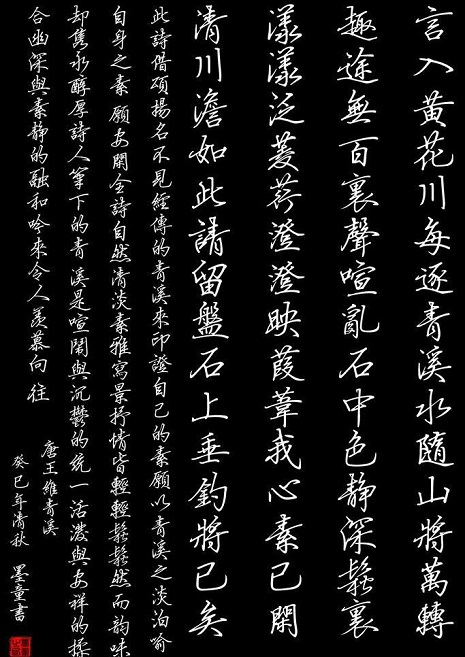 言入黃花川每逐青溪水隨山將萬轉
趣途無百裏聲喧亂石中色靜深鬆裏
漾漾泛菱荇澄澄映葭葦我心素已閑
清川澹如此請留盤石上垂釣將已矣
此詩借頌揚名不見經傳的青溪來印證自己的素願以青溪之淡泊喻
自身之素願安閑全詩自然清淡素雅寫景抒情皆輕輕鬆鬆然而韵味
却雋永醇厚詩人筆下的青溪是喧鬧與沉鬱的統一活潑與安祥的揉
合幽深與素靜的融和吟來令人羨慕向往
唐王維青溪
癸巳年清秋 墨童書